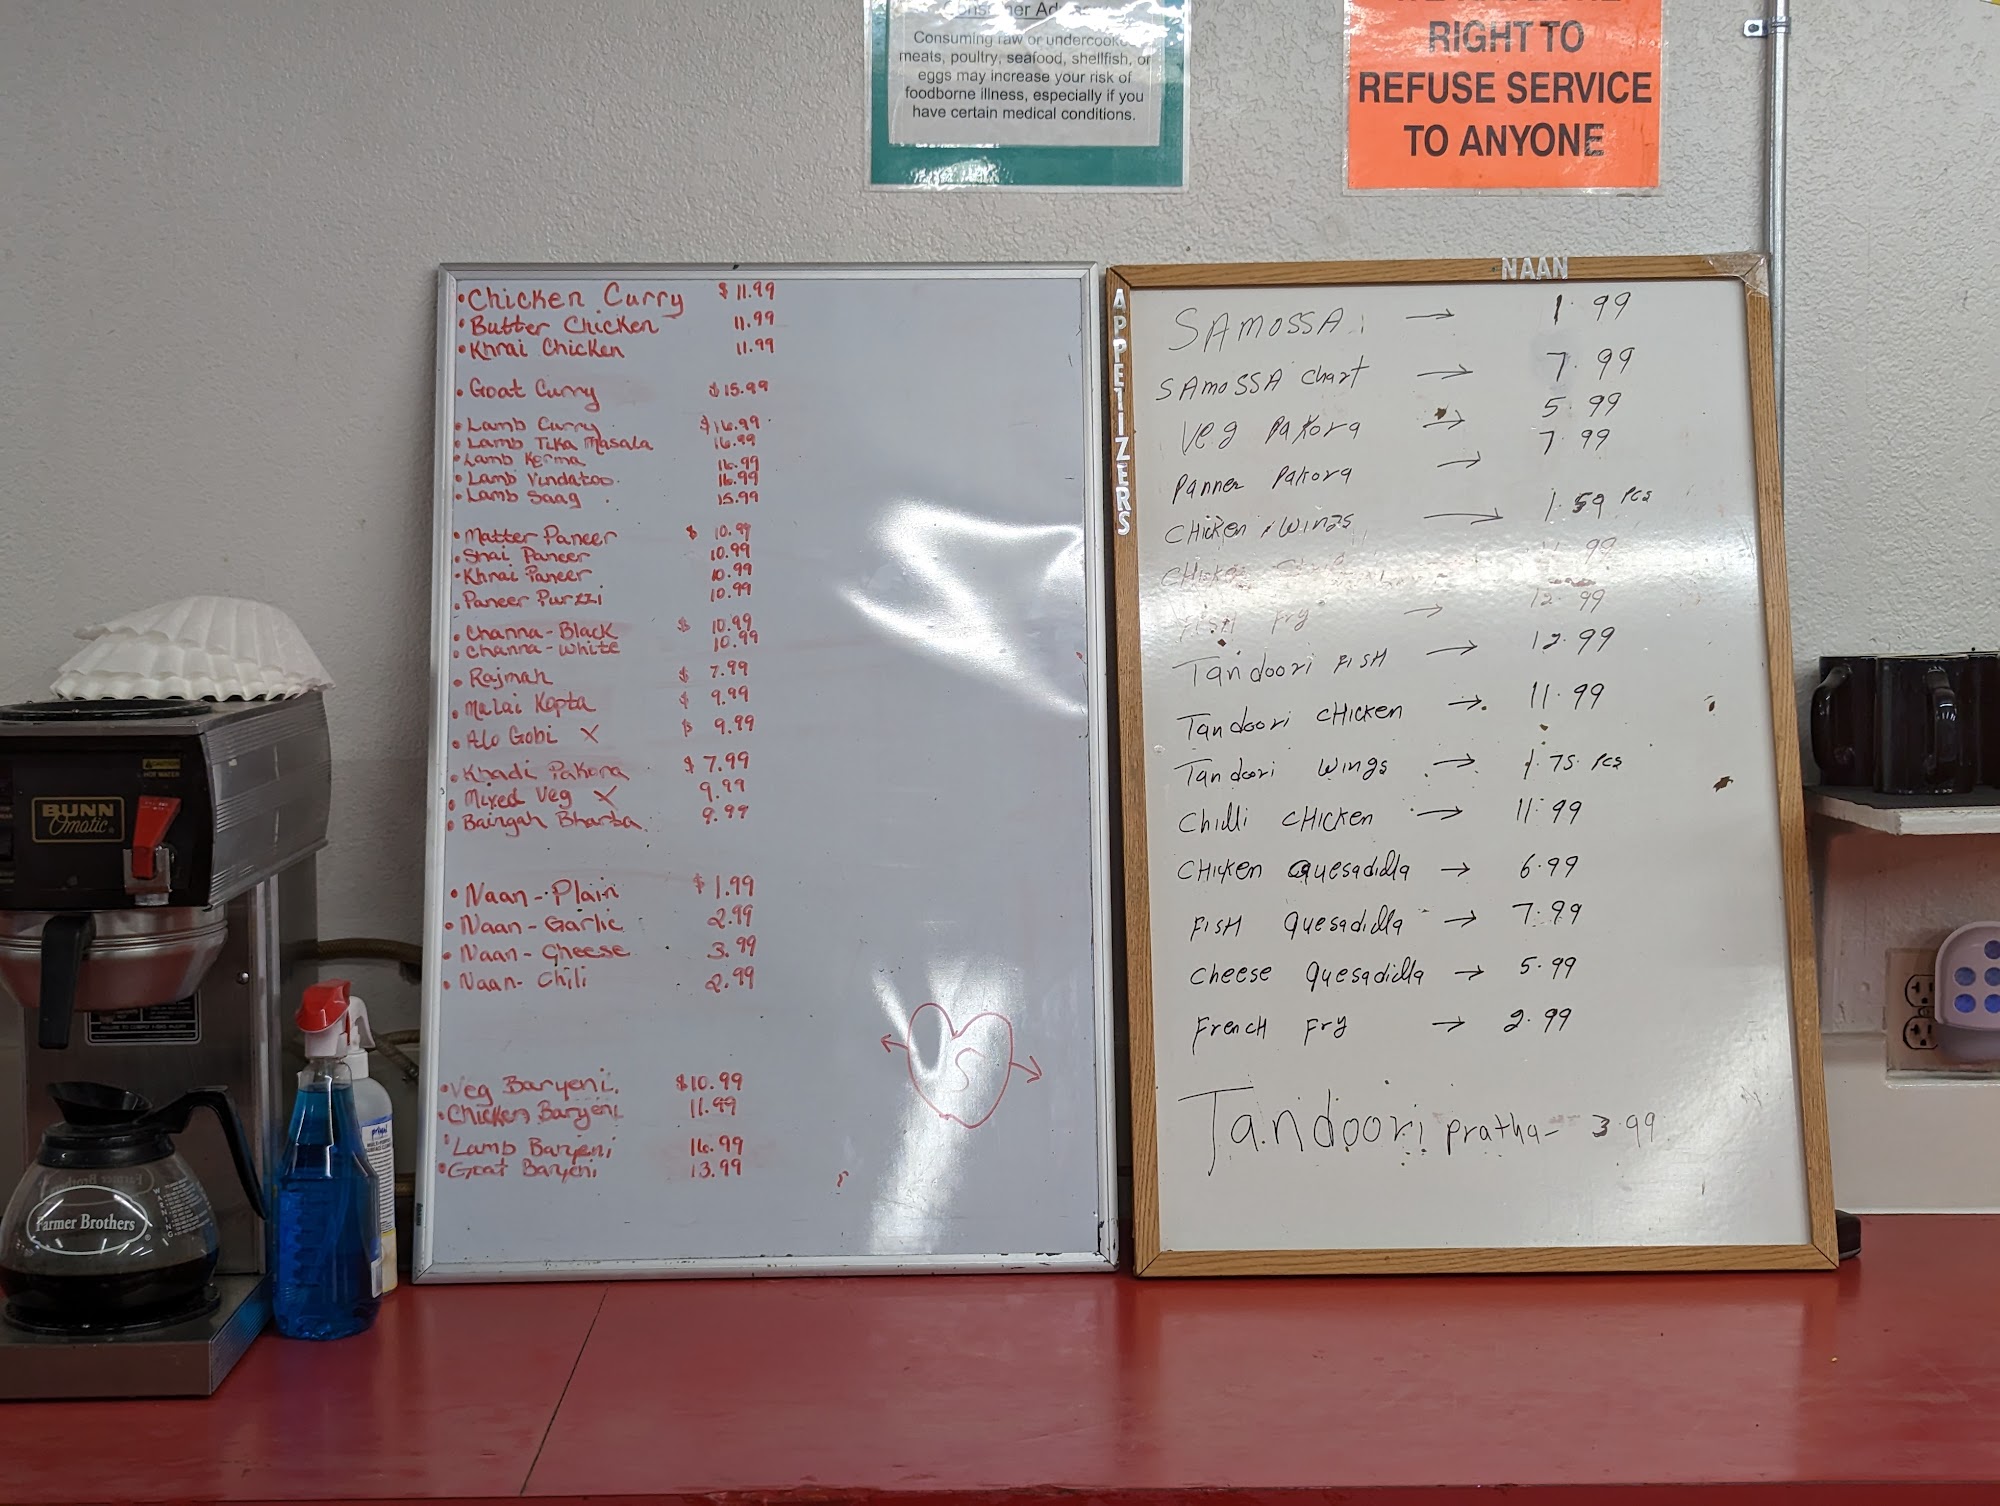 Consumer Ad
Consuming raw or undercooked
meats, poultry, seafood, shellfish, or
eggs may increase your risk of
foodborne illness, especially if you
have certain medical conditions.
RIGHT TO
REFUSE SERVICE
TO ANYONE
• Chicken Curry $ 11.99
• Butter Chicken 11.99
• Khrai Chicken 11.99
• Goat Curry $15.99
• Lamb Curry $16.99
• Lamb Tika Masala 16.99
• Lamb Korma 16.99
• Lamb Vindatoo 16.99
• Lamb Saag 15.99
• Matter Paneer $ 10.99
• Shai Paneer 10.99
• Khrai Paneer 10.99
• Paneer Purzzi 10.99
• Channa-Black $ 10.99
• Channa-White 10.99
• Rajmah $ 7.99
• Malai Kopta $ 9.99
• Alo Gobi X $ 9.99
• Khadi Pakora $7.99
• Mixed Veg X 9.99
• Baingah Bharta 9.99
• Naan-Plain $1.99
• Naan-Garlic 2.99
• Naan-Cheese 3.99
• Naan-Chili 2.99
• Veg Baryeni $10.99
• Chicken Baryeni 11.99
• Lamb Baryeni 16.99
• Goat Baryeni 13.99
S
NAAN
APPETIZERS
SAMOSSA → 1.99
SAMOSSA chart → 7.99
Veg Pakora → 5.99
Panner Pakora → 7.99
CHicken wings → 1.59 Pcs
CHicken 11.99
FISH Fry → 12.99
Tandoori FISH → 12.99
Tandoori CHicken → 11.99
Tandoori wings → 1.75 Pcs
Chilli CHicken → 11.99
CHicken Quesadilla → 6.99
FISH Quesadilla → 7.99
cheese Quesadilla → 5.99
French Fry → 2.99
Tandoori pratha- 3.99
BUNN
Omatic
CAUTION
HOT WATER
Farmer Brothers
WARNING